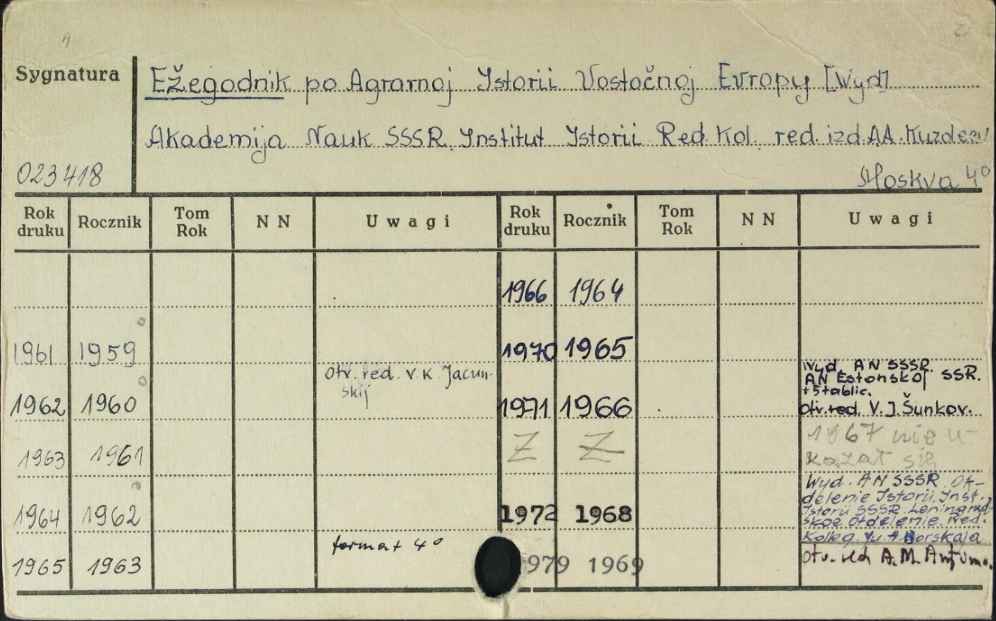 Sygnatura
Ežegodnik po Agrarnoj Istorii Vostočnoj Evropy [Wyd]
Akademija Nauk SSSR. Institut Istorii Red. Kol. red. izd. A.A.
023418
Moskva 4°
Rok druku Rocznik Tom Rok N N Uwagi Rok druku Rocznik Tom Rok N N Uwagi
1966 1964
1961 1959 1970 1965
Otv. red. V. K. Jacun-
skij
Wyd. AN SSSR.
AN Estonskoj SSR.
+ 5 tablic.
1962 1960 1971 1966 Otv. red. V. J. Šunkov.
1963 1961 Z Z 1967 nie u-
kazał się
Wyd. AN SSSR. Ot-
delenie Istorii. Inst.
1964 1962 1972 1968 Istorii SSSR. Leningrad-
skoe otdelenie. Red.
format 4°
1965 1963 1979 1969 Otv. red. A. M.